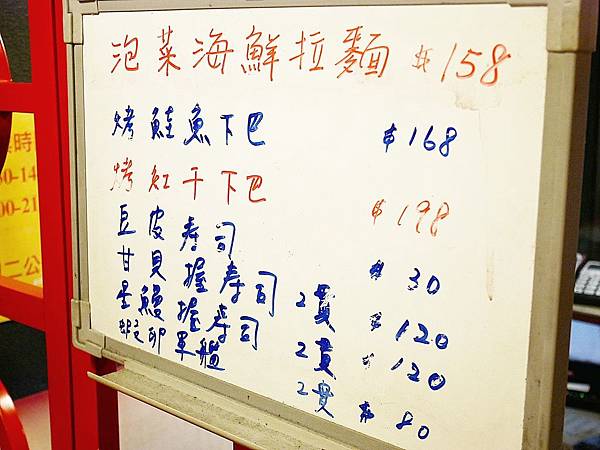 泡菜海鮮拉麵 $158
烤鮭魚下巴 $168
烤紅干下巴 $198
豆皮壽司 $30
甘貝握壽司 2貫 $120
星鰻握壽司 2貫 $120
蝦卵軍艦 2貫 $80
時
00-21
二公